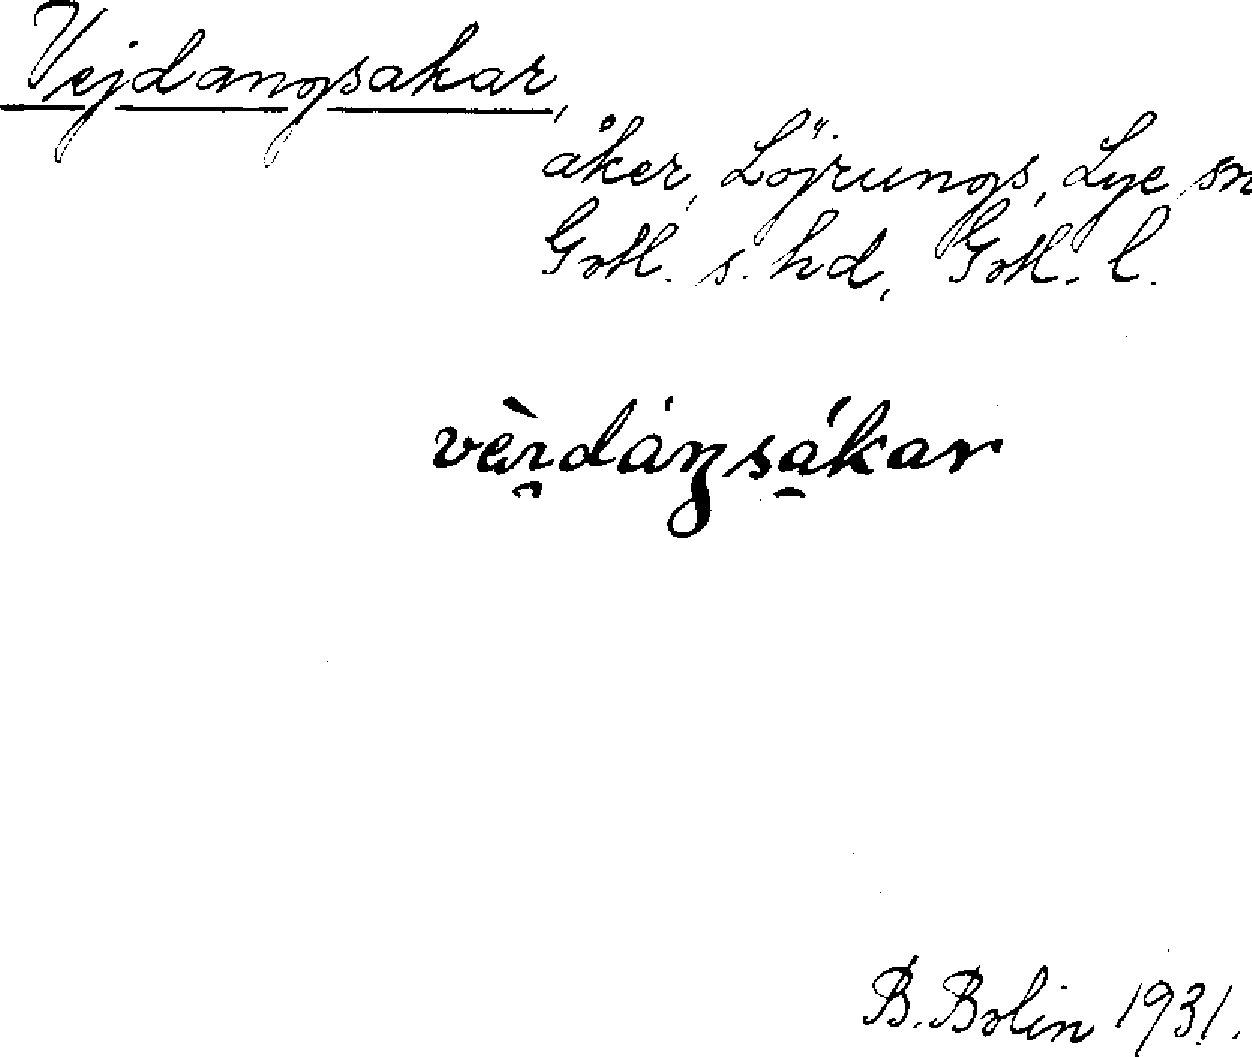 Vejdangsakar,
åker, Löjrungs, Lye sn
Gotl. s. hd, Gotl. l.
B. Bolin 1931.